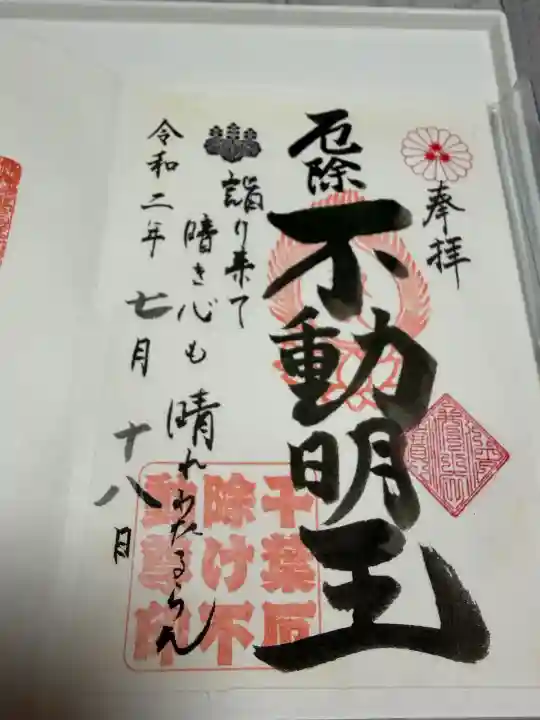 奉拝
厄除
不動明王
詣り来て
暗き心も
晴れわたるらん
令和二年
七月
十八日
千葉厄
除け不
動尊印